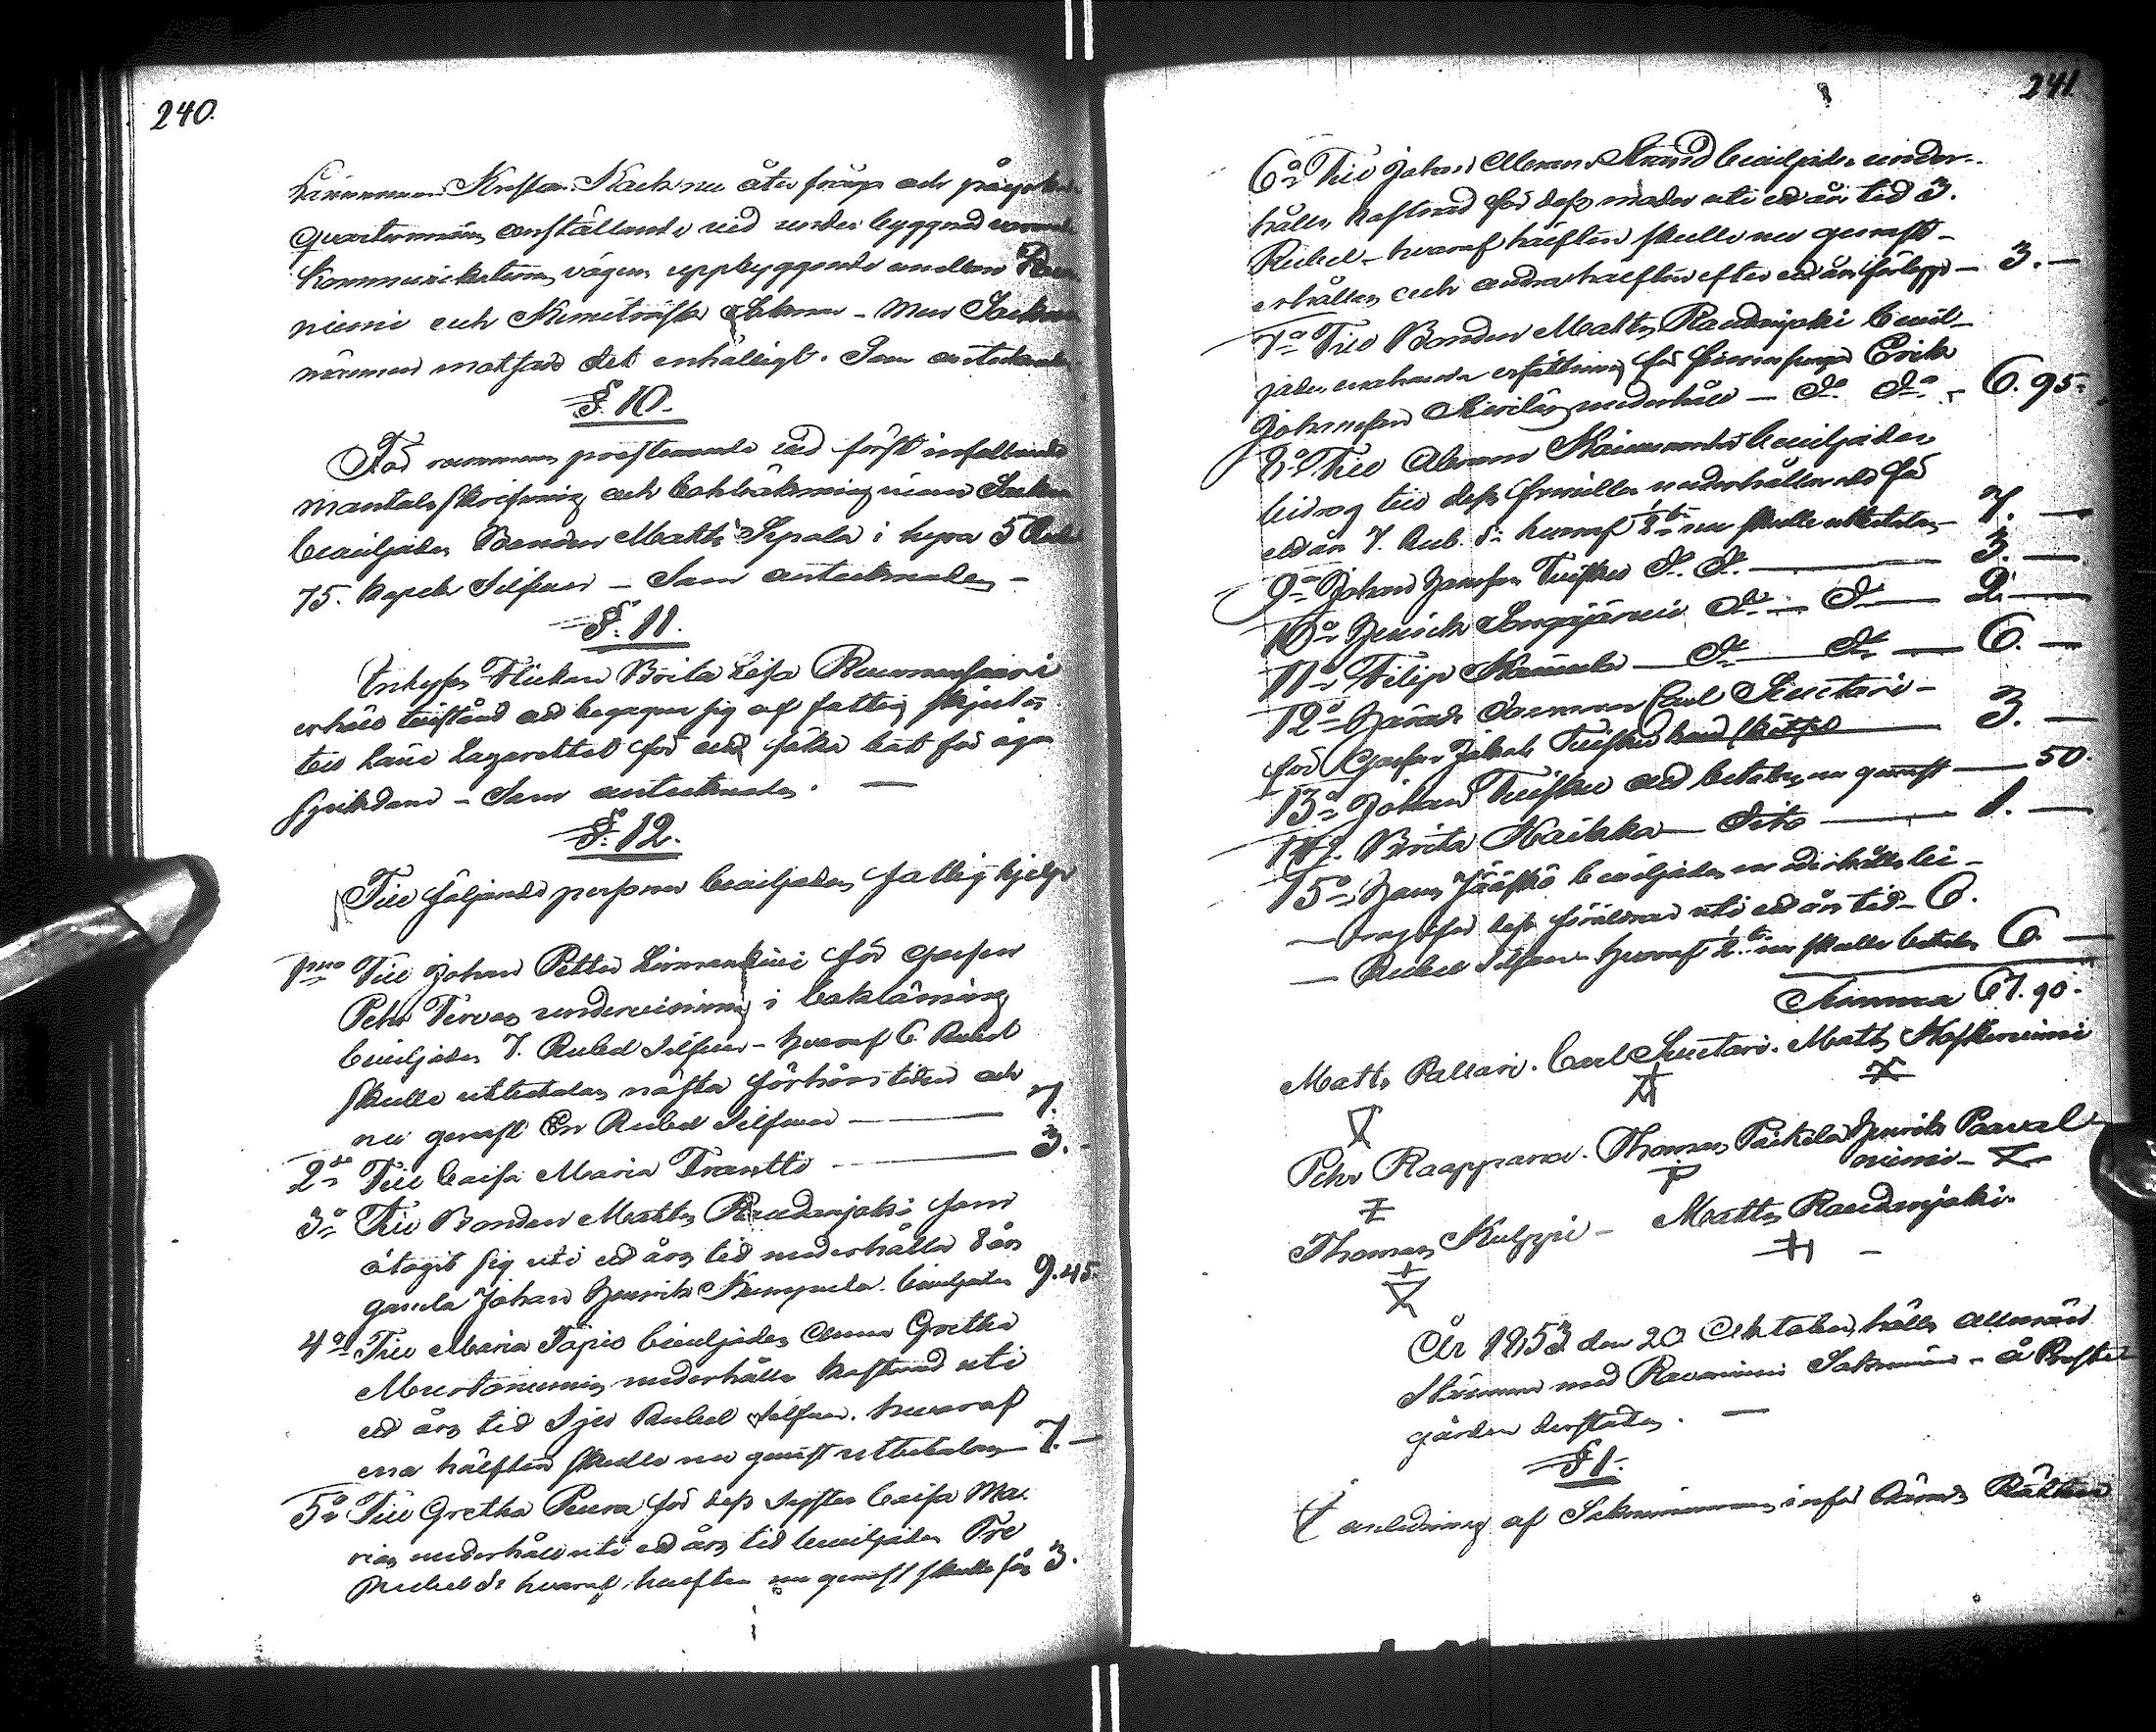 240.
Länsmannen Kristian Kack nu åter fråga och påyrkade
quartermäns anställande vid under byggnad varande
kommunikations vägens uppbyggande emellan Rova-
niemi och Kemiträsk Soknar - men Sockne
männen motsade det enhälligt. Som antecknades
§. 10.
För rummens presterande vid först infallande
mantals skrifning och bokläsning inom Socken
beviljades Bonden Matts Sepala i hyra 5 Rubel
75. kopek Silfver - Som antecknades -
§. 11.
Inhyses Flickan Brita Lisa Ruumensaari
erhöll tillstånd att begagna sig af fattig skjuts
till Läne Lazarettet för att söka bot för ögon
sjukdom - Som antecknades. —
§. 12.
Till följande personer beviljades fattig hjelp
1mo Till Johan Petter Linnankivi för Gossen
Pehr Tervos undervisning i bokläsning
beviljades 7. Rubel Silfver - hvaraf 6 Rubel
skulle utbetalas nästa förhörs tiden och
nu genast En Rubel Silfver — 7.
2do Till Caisa Maria Frantti — 3. -
3o Till Bonden Matts Raudanjoki som
åtagit sig uti ett års tid underhålla 8 års
gamla Johan Henrik Kumpula. beviljades 9.45.
4o Till Maria Tapio beviljades Anna Gretha
Mustoniemis underhålls kostnad uti
ett års tid Sju Rubel Silfver. hvaraf
ena hälften skulle nu genast utbetalas — 7. —
5o Till Gretha Peura för dess Syster Caisa Ma-
rias underhåll uti ett års tid beviljades Tre
Rubel Sr hvaraf hälften nu genast skulle fås 3.
241.
6o Till Johan Abram Strand beviljades under-
hålls kostnad för dess moder uti ett års tid 3.
Rubel - hvaraf hälften skulle nu genast
erhållas och andra hälften efter ett års förlopp — 3. —
7o Till Bonden Matts Raudanjoki bevil-
jades enahanda ersättning för
Johansson underhåll — do do - 6.95.
8o Till Abram beviljades
bidrag till dess familles underhållande för
ett år 7. Rub. Sr hvaraf 1/2 nu skulle utbetalas 7. —
9o Johan Tuisku do do — 3. —
10o Henrich do — do — 2. —
11o Filip do — do — 6. —
12o Härads Domaren Carl Siuctari -
för Gossen Jakob Tuiskus — 3. —
13o Johan Tuisku att betalas nu genast — 50.
14o. Brita Kaikka — Dito — 1. —
15o Hans Jääskö beviljades underhålls bi-
— drag för dess föräldrar uti ett års tid - 6.
— Rubel Silfver - hvaraf 1/2 nu skulle betalas 6. —
Summa 67.90.
Matts Pallari. Carl Siuctari. Matts Koskiniemi
Pehr Raappana. Thomas Paikela Henrik Paaval
niemi -
Thomas Kulppi - Matts Raudanjoki.
År 1853 den 20 Oktober, hölls allmän
Stämma med Rovaniemi Sokneman - å Prest
gården derstädes. —
§ 1.
I anledning af Soknemannens inför Härads Rätten